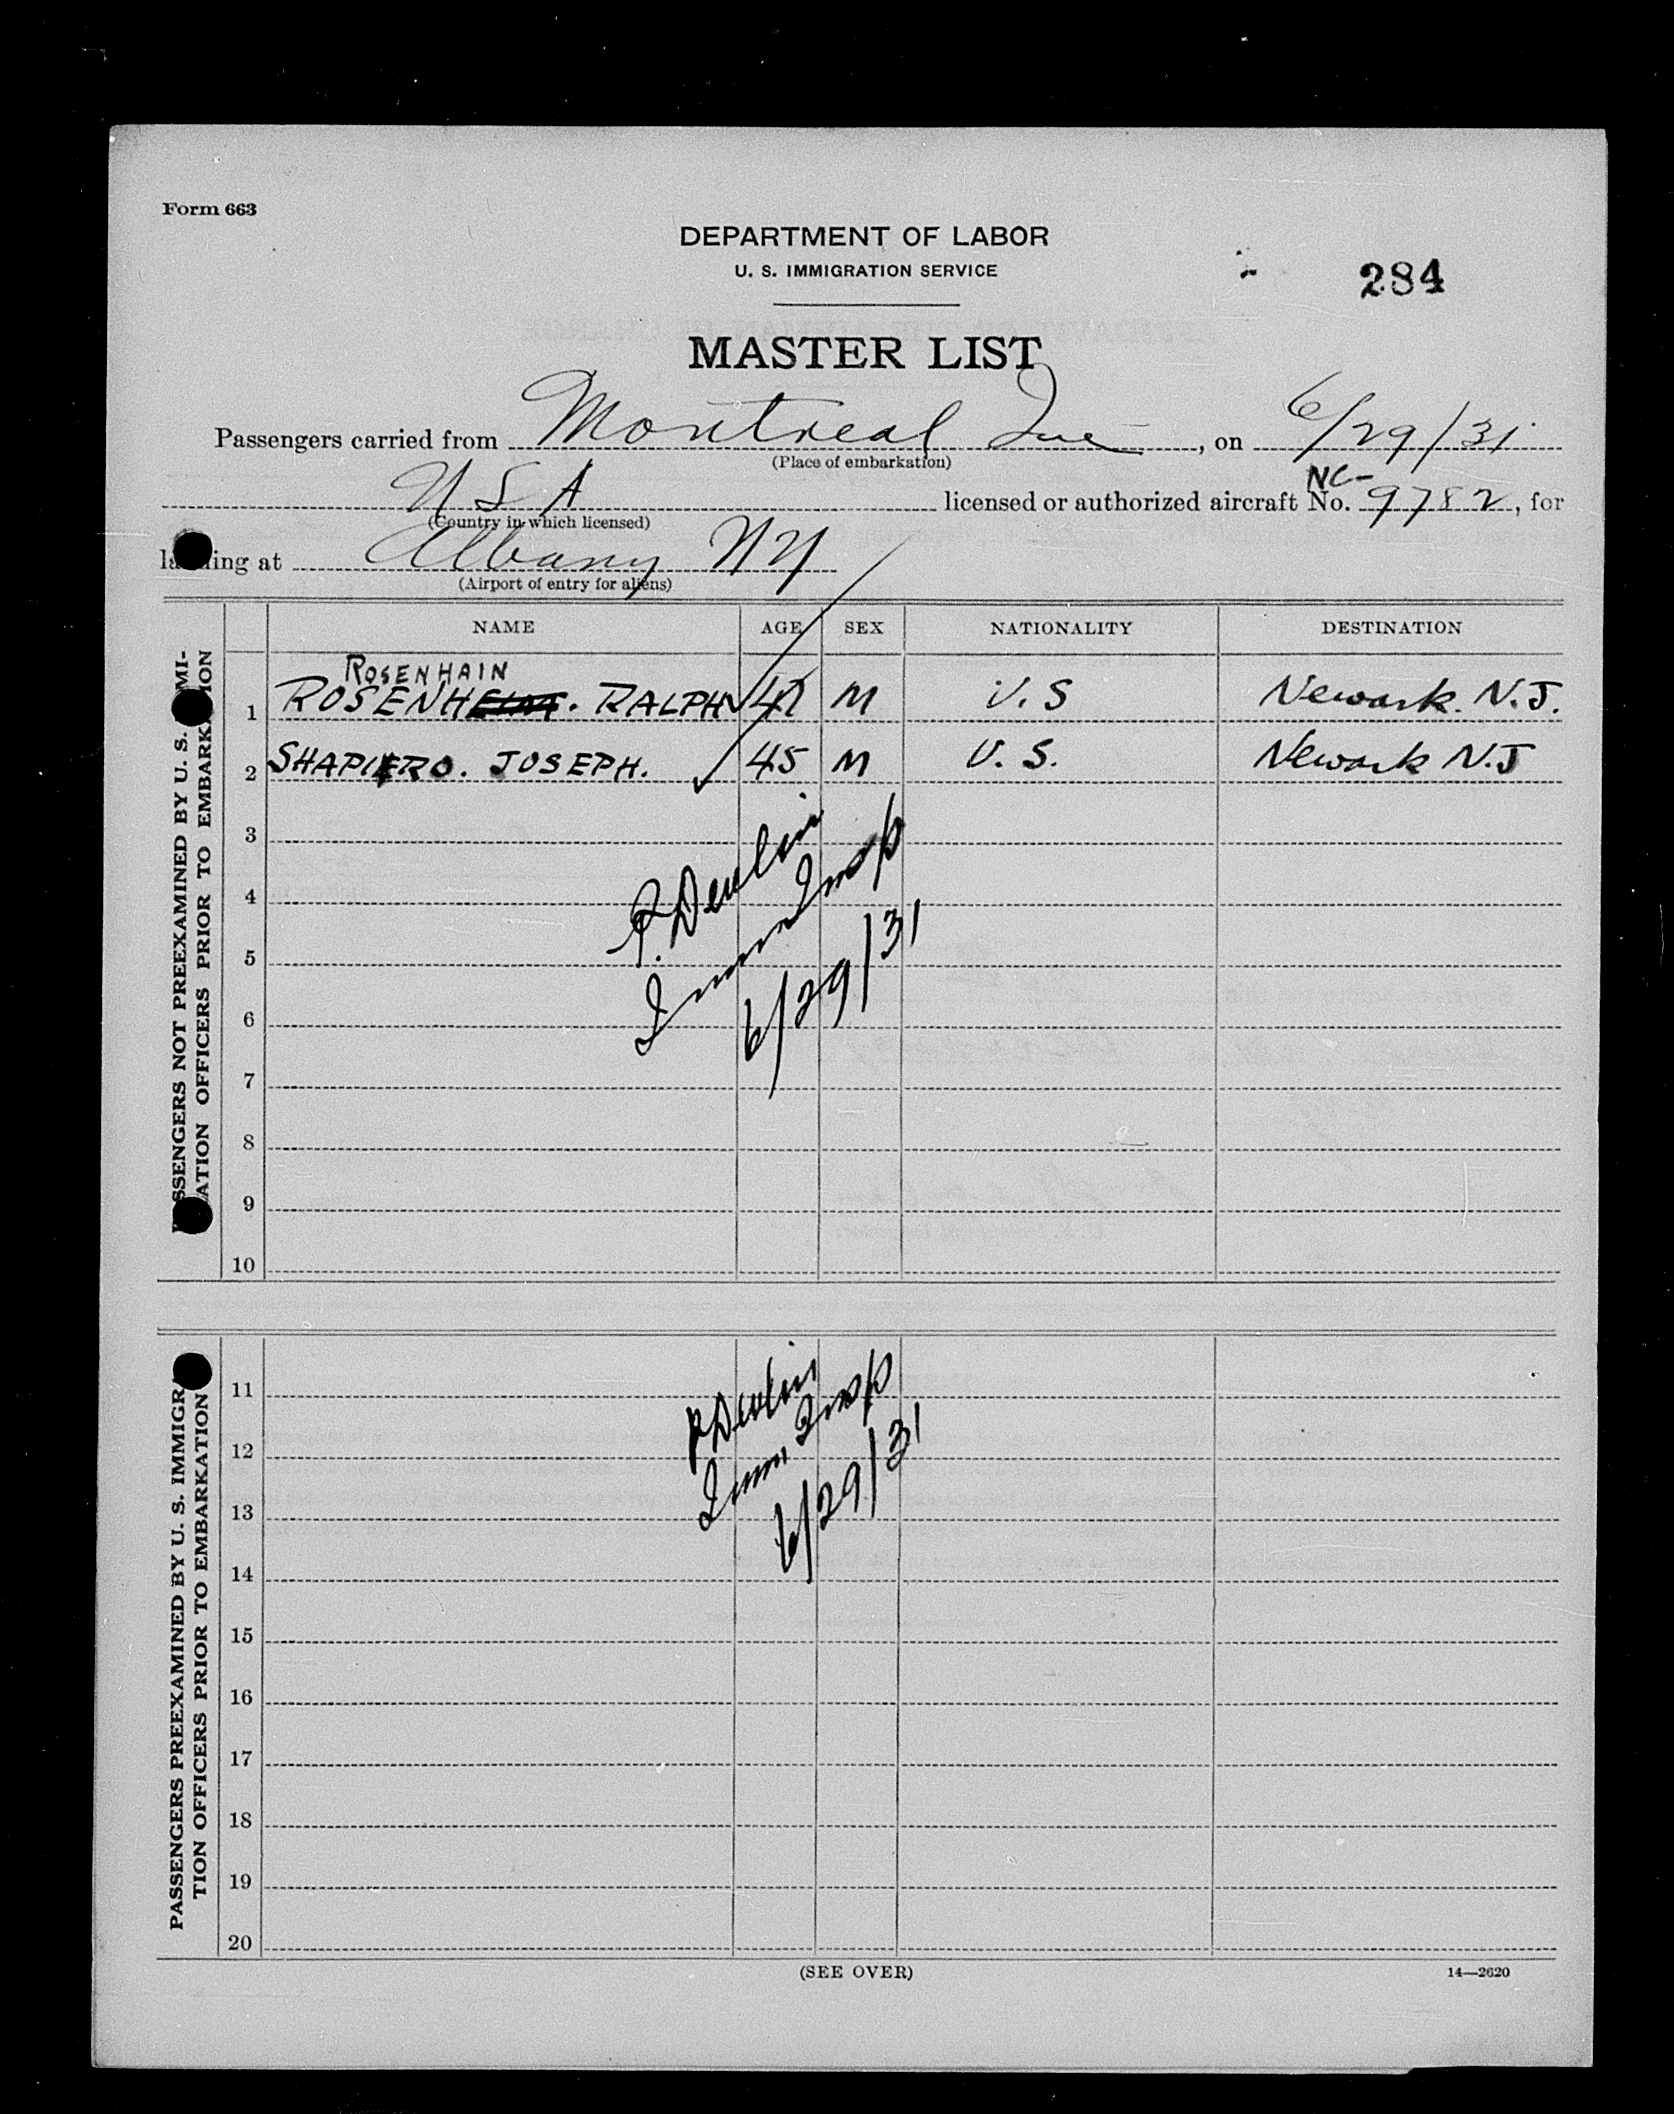 Form 663
DEPARTMENT OF LABOR
U. S. IMMIGRATION SERVICE
284
MASTER LIST
Passengers carried from Montreal Que, on 6/29/31
(Place of embarkation)
NC-
USA licensed or authorized aircraft No. 9782, for
(Country in which licensed)
landing at Albany NY
(Airport of entry for aliens)
NAME AGE SEX NATIONALITY DESTINATION
PASSENGERS NOT PREEXAMINED BY U. S. IMMI-
GRATION OFFICERS PRIOR TO EMBARKATION
ROSENHAIN
1 ROSENH. RALPH M U.S Newark. N.J.
2 SHAPIRO. JOSEPH. 45 M U.S. Newark N.J
3
4
5
6
7
8
9
10
P. Devlin
Imm Insp
6/29/31
PASSENGERS PREEXAMINED BY U. S. IMMIGRA-
TION OFFICERS PRIOR TO EMBARKATION
11
12
13
14
15
16
17
18
19
20
P Devlin
Imm, Insp
6/29/31
(SEE OVER)
14—2620